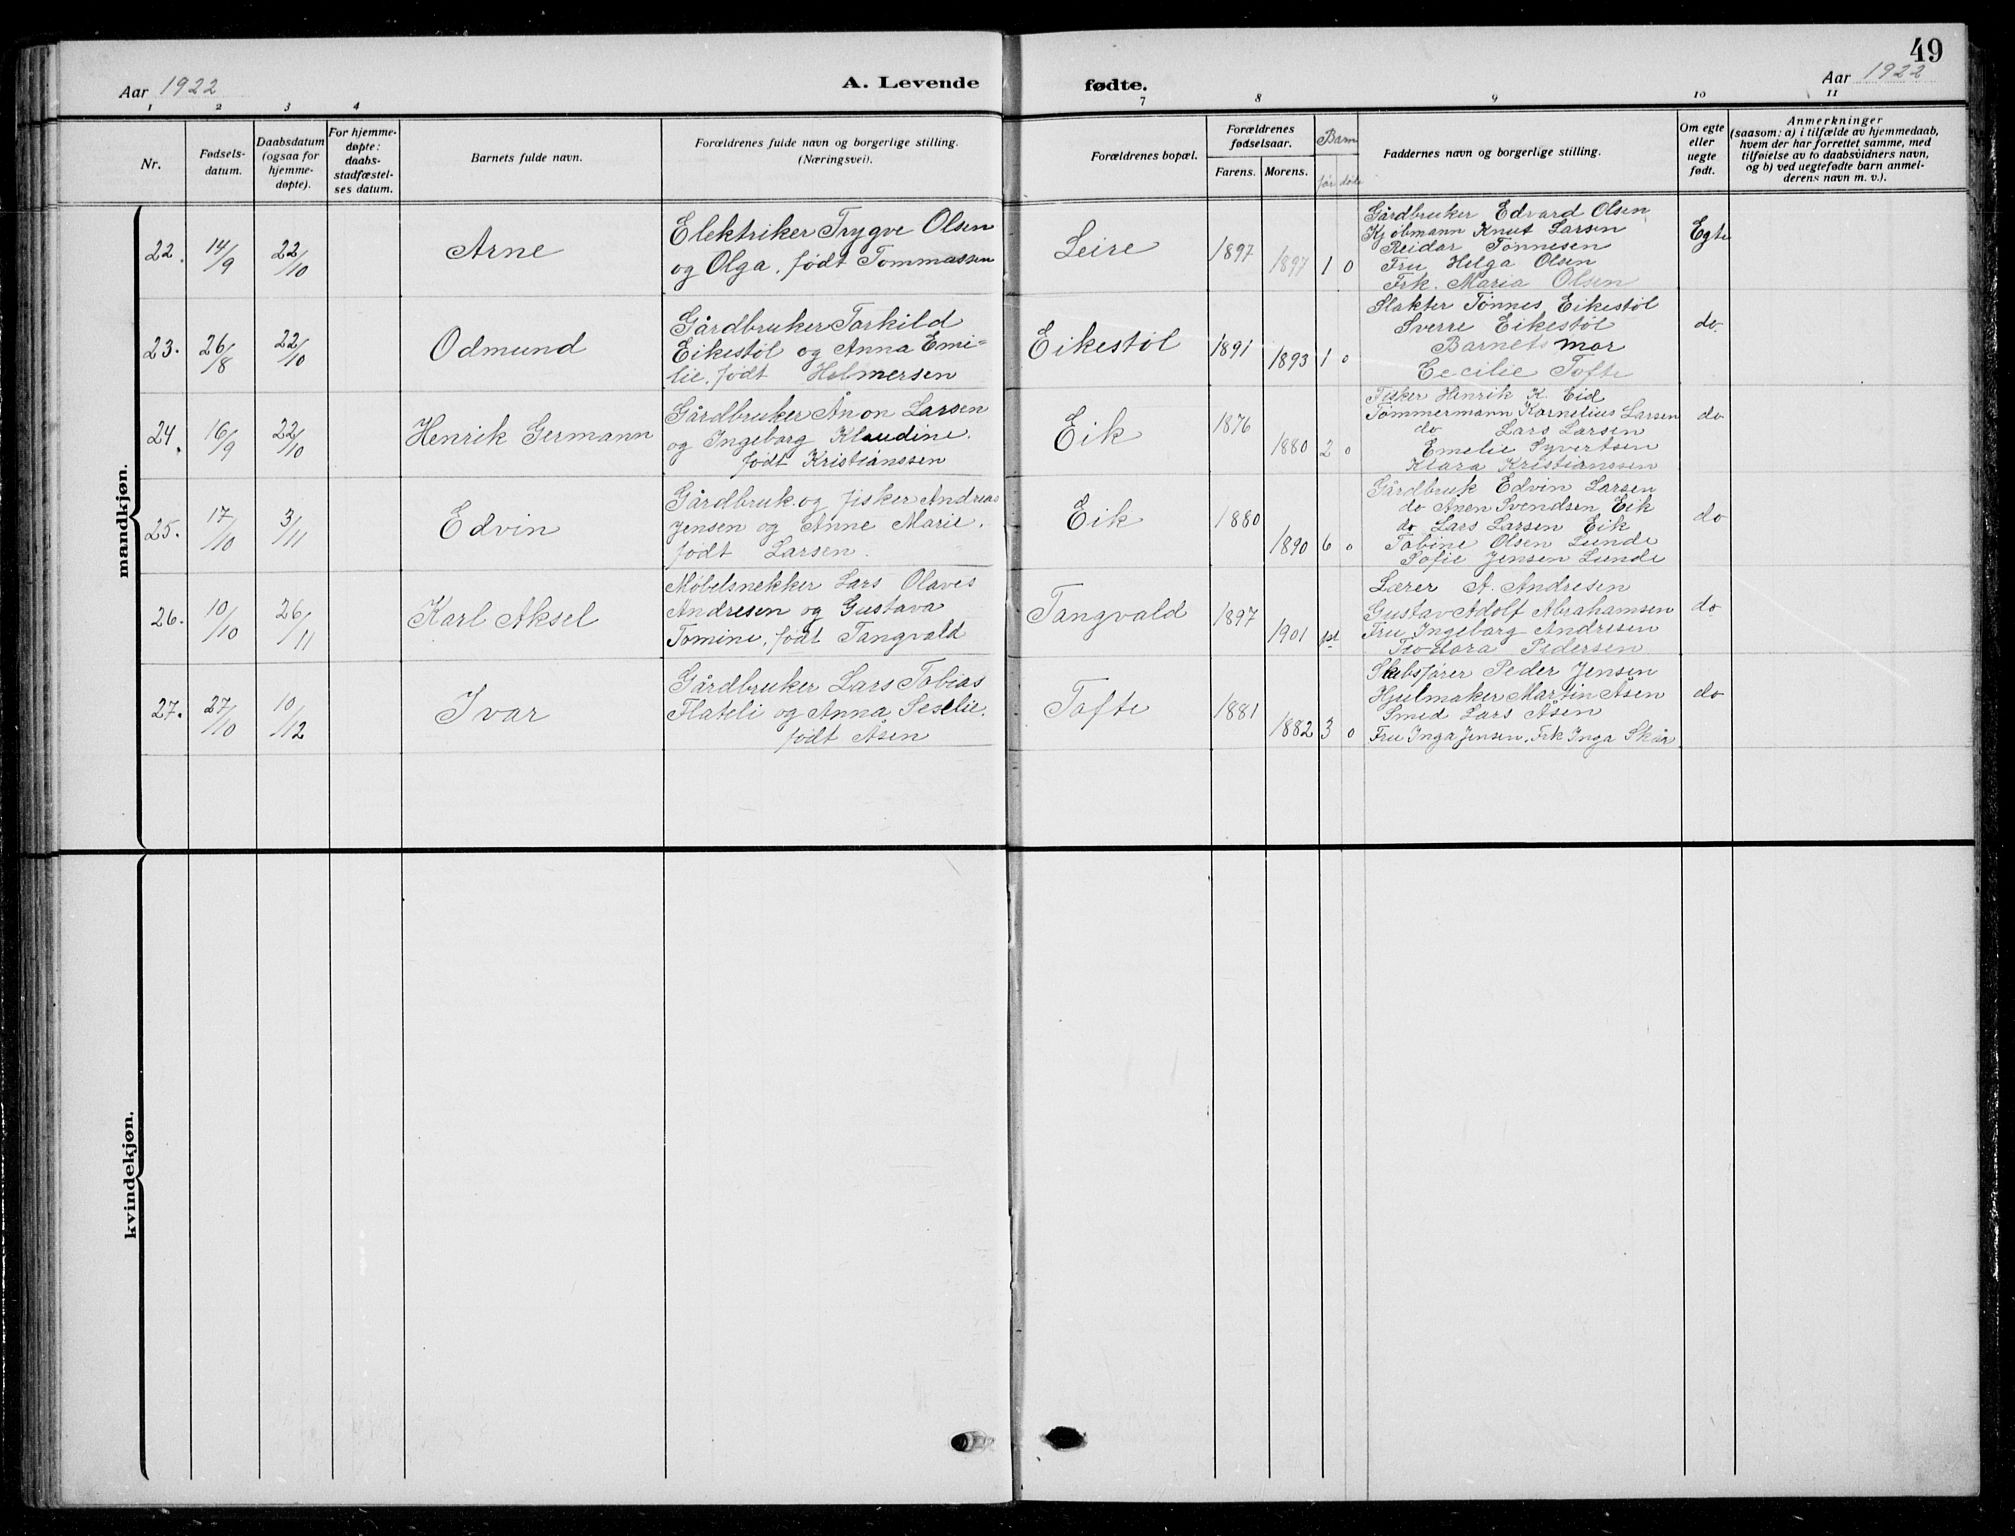 49
Aar 1922
A. Levende fødte.
Aar 1922
1 2 3 4 7 8 9 10 11
Nr.
Fødsels-
datum.
Daabsdatum
(ogsaa for
hjemme-
døpte).
For hjemme-
døpte:
daabs-
stadfæstel-
ses datum.
Barnets fulde navn.
Forældrenes fulde navn og borgerlige stilling.
(Næringsvei).
Forældrenes bopæl.
Forældrenes
fødselsaar.
Farens. Morens.
Barn
før døde
Faddernes navn og borgerlige stilling.
Om egte
eller
uegte
født.
Anmerkninger
(saasom: a) i tilfælde av hjemmedaab,
hvem der har forrettet samme, med
tilføielse av to daabsvidners navn,
og b) ved uegtefødte barn anmel-
derens navn m. v.).
mandkjøn.
22. 14/9 22/10 Arne
Elektriker Trygve Olsen
og Olga, født Tommassen
Leire 1897 1897 1 0
Gårdbruker Edvard Olsen
Kjøbmann Knut Larsen
Reidar Tønnesen
Fru Helga Olsen
Frk. Maria Olsen
Egte
23. 26/8 22/10 Odmund
Gårdbruker Tarkild
Eikestøl og Anna Emi-
lie, født Helmersen
Eikestøl 1891 1893 1 0
Slakter Tønnes Eikestøl
Sverre Eikestøl
Barnets mor
Cecilie Tofte
do.
24. 16/9 22/10 Henrik Germann
Gårdbruker Ånon Larsen
og Ingeborg Klaudine.
født Kristianssen
Eik 1876 1880 2 0
Fisker Henrik K. Eid
Tømmermann Kornelius Larsen
do Lars Larsen
Emelie Syvertsen
Klara Kristianssen
do
25. 17/10 3/11 Edvin
Gårdbruk. og fisker Andreas
Jensen og Anne Marie.
født Larsen.
Eik 1880 1890 6 0
Gårdbruk Edvin Larsen
do Anen Svendsen Eik
do Lars Larsen Eik
Tabine Olsen Lunde
Sofie Jensen Lunde
do
26. 10/10 26/11 Karl Aksel
Møbelsnekker Lars Olaves
Andresen og Gustava
Tomine, født Tangvald
Tangvald 1897 1901 1st
Lærer A. Andresen
Gustav Adolf Abrahamsen
Fru Ingeborg Andresen
Teodora Pedersen
do
27. 27/10 10/12 Ivar
Gårdbruker Lars Tobias
Flateli og Anna Seselie.
født Åsen
Tofte 1881 1882 3 0
Skibsfører Peder Jensen
Hjulmaker Martin Åsen
Smed Lars Åsen
Fru Inga Jensen. Frk Inga Skår
do
kvindekjøn.